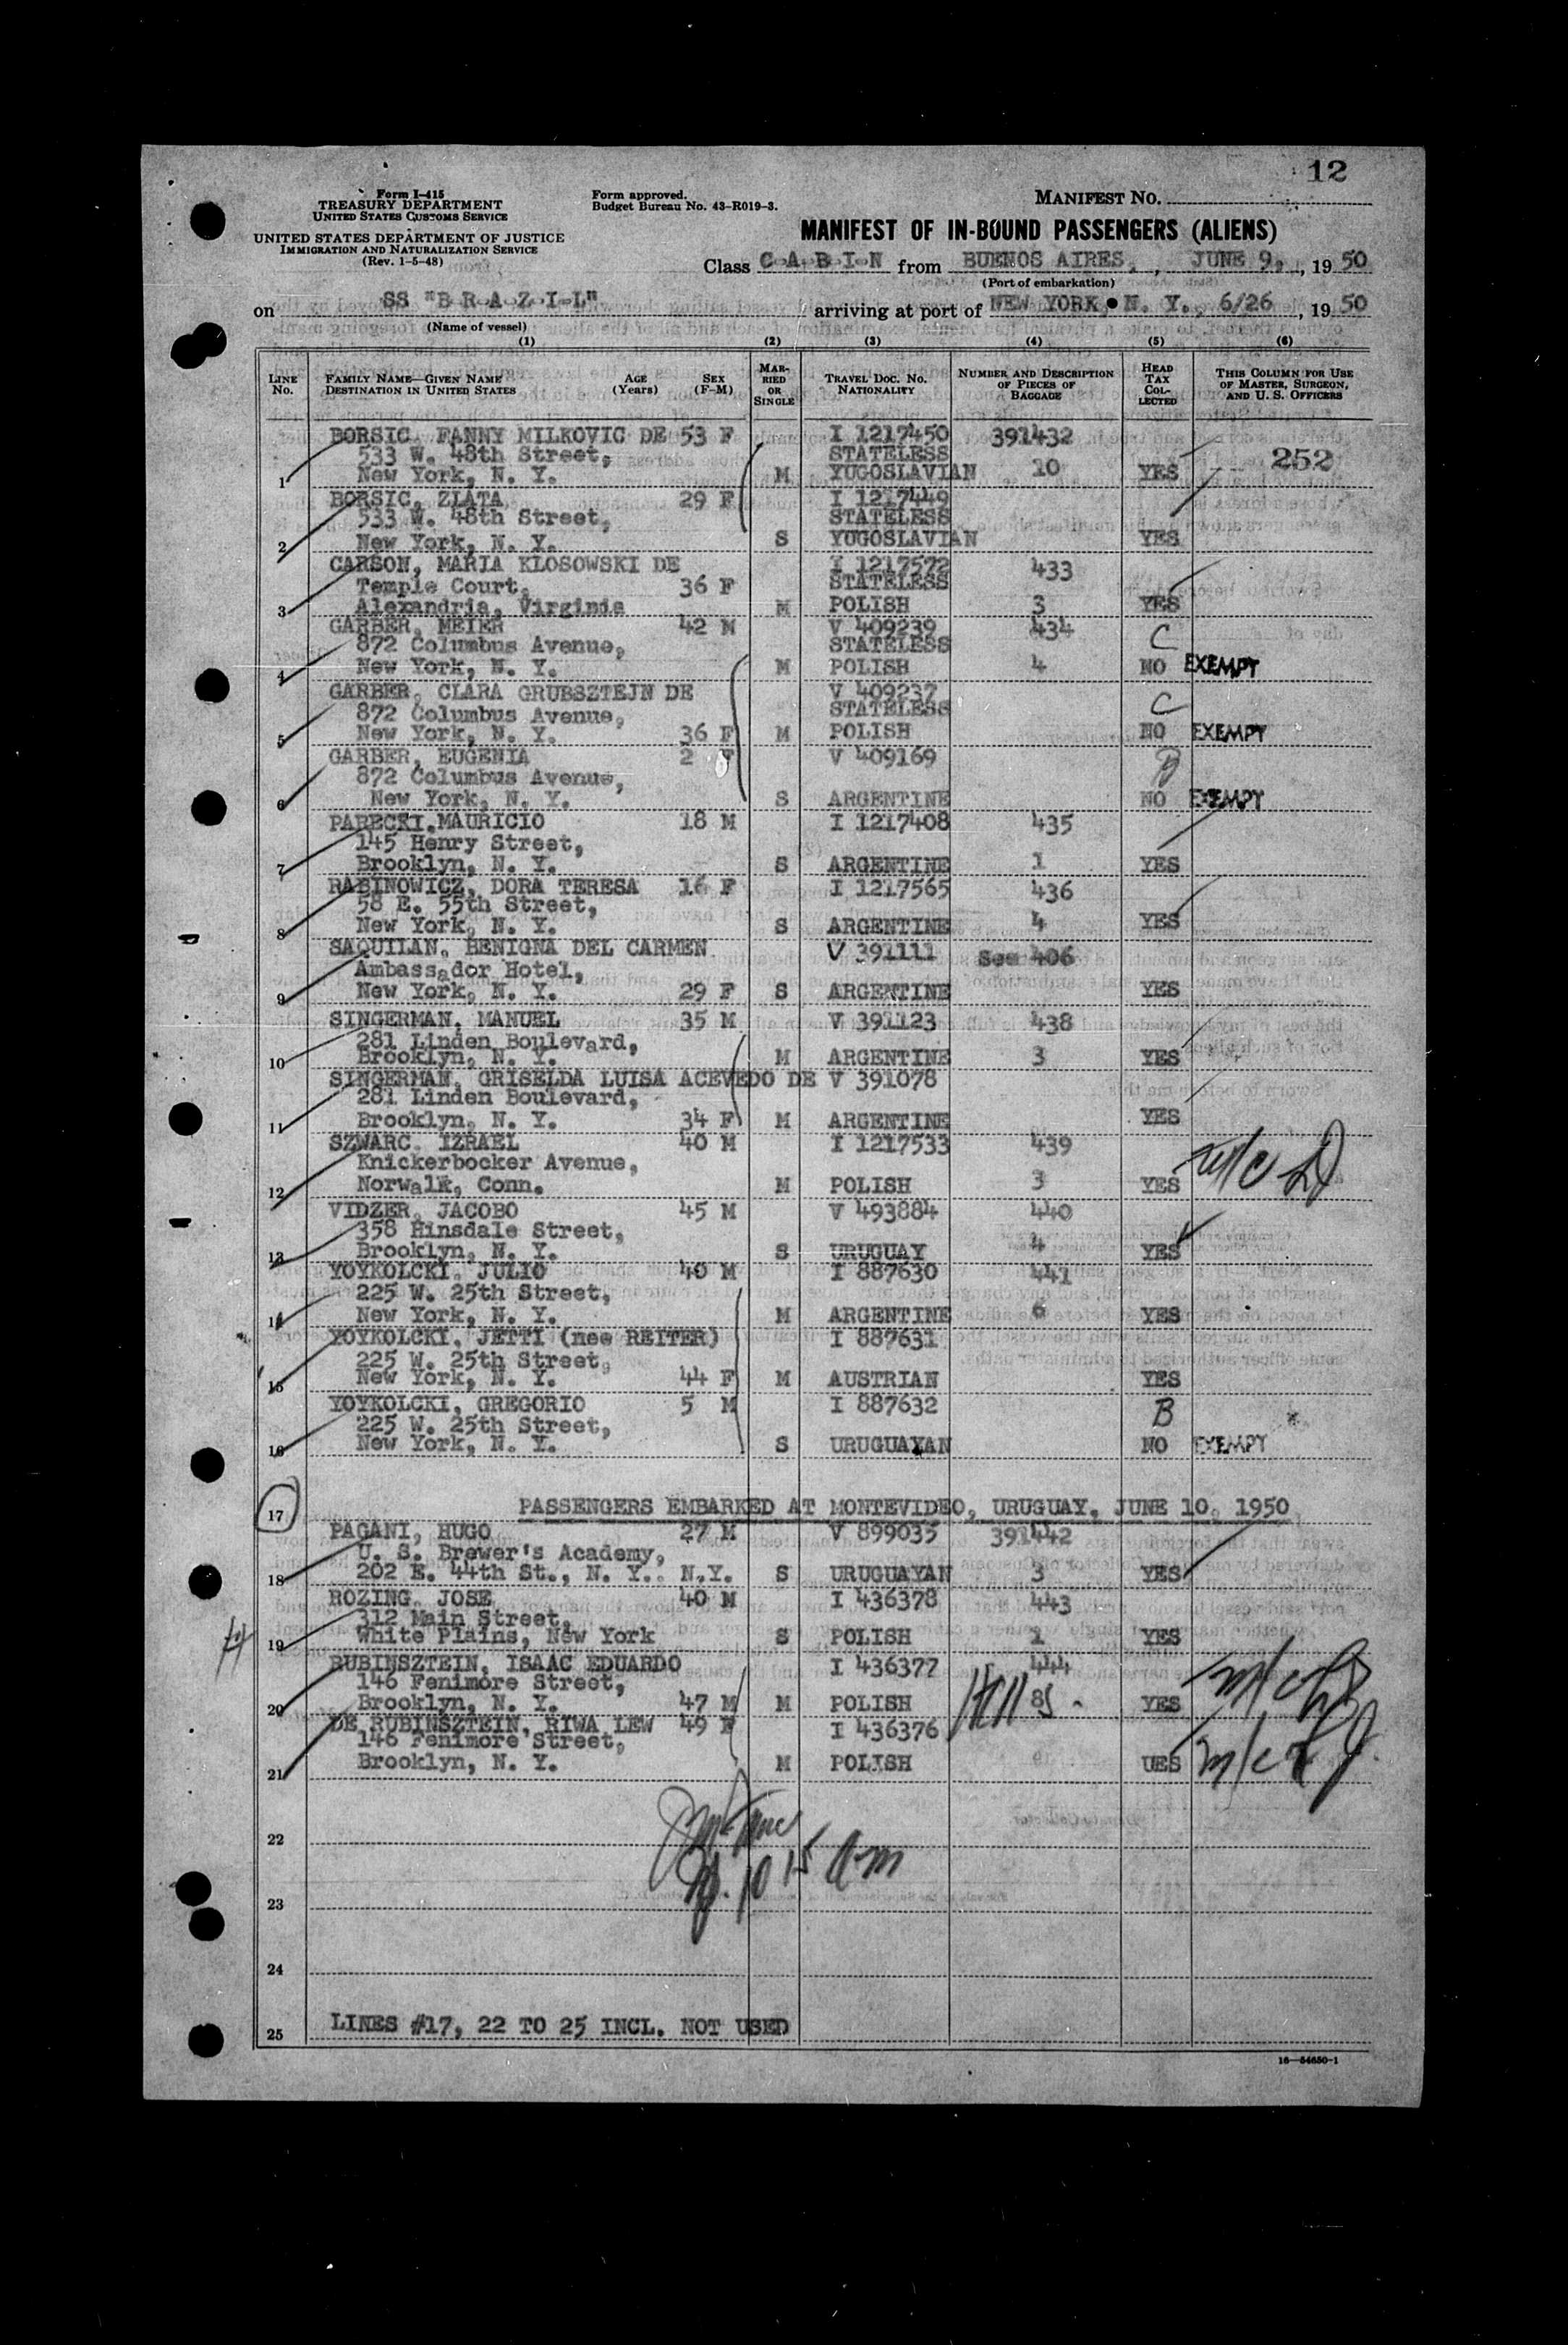 12
Form I-415
TREASURY DEPARTMENT
UNITED STATES CUSTOMS SERVICE
UNITED STATES DEPARTMENT OF JUSTICE
IMMIGRATION AND NATURALIZATION SERVICE
(Rev. 1-5-48)
Form approved.
Budget Bureau No. 43-R019-3.
MANIFEST NO.
MANIFEST OF IN-BOUND PASSENGERS (ALIENS)
Class C-A-B-I-N from BUENOS AIRES, JUNE 9, 1950
(Port of embarkation)
on SS "B-R-A-Z-I-L" arriving at port of NEW YORK, N. Y. 6/26, 1950
(Name of vessel)
(1) (2) (3) (4) (5) (6)
LINE NO. FAMILY NAME—GIVEN NAME DESTINATION IN UNITED STATES AGE (Years) SEX (F-M) MARRIED OR SINGLE TRAVEL DOC. NO. NATIONALITY NUMBER AND DESCRIPTION OF PIECES OF BAGGAGE HEAD TAX COLLECTED THIS COLUMN FOR USE OF MASTER, SURGEON, AND U. S. OFFICERS
BORSIC, FANNY MILKOVIC DE 53 F I 1217450 391432
533 W. 48th Street, STATELESS 252
1 New York, N. Y. M YUGOSLAVIAN 10 YES
BORSIC, ZLATA 29 F I 1217449
533 W. 48th Street, STATELESS
2 New York, N. Y. S YUGOSLAVIAN YES
CARSON, MARIA KLOSOWSKI DE I 1217572 433
Temple Court, 36 F STATELESS
3 Alexandria, Virginia M POLISH 3 YES
GARBER, MEIER 42 M V 409239 434
872 Columbus Avenue, STATELESS C
4 New York, N. Y. M POLISH 4 NO EXEMPT
GARBER, CLARA GRUBSZTEJN DE V 409237
872 Columbus Avenue, STATELESS C
5 New York, N. Y. 36 F M POLISH NO EXEMPT
GARBER, EUGENIA 2 F V 409169
872 Columbus Avenue, B
6 New York, N. Y. S ARGENTINE NO EXEMPT
PARECKI, MAURICIO 18 M I 1217408 435
145 Henry Street,
7 Brooklyn, N. Y. S ARGENTINE 1 YES
RABINOWICZ, DORA TERESA 16 F I 1217565 436
58 E. 55th Street,
8 New York, N. Y. S ARGENTINE 4 YES
SAQUILAN, BENIGNA DEL CARMEN V 391111 See 406
Ambassador Hotel,
9 New York, N. Y. 29 F S ARGENTINE YES
SINGERMAN, MANUEL 35 M V 391123 438
281 Linden Boulevard,
10 Brooklyn, N. Y. M ARGENTINE 3 YES
SINGERMAN, GRISELDA LUISA ACEVEDO DE V 391078
281 Linden Boulevard,
11 Brooklyn, N. Y. 34 F M ARGENTINE YES
SZWARC, IZRAEL 40 M I 1217533 439
Knickerbocker Avenue,
12 Norwalk, Conn. M POLISH 3 YES
VIDZER, JACOBO 45 M V 493884 440
358 Hinsdale Street,
13 Brooklyn, N. Y. S URUGUAY 4 YES
YOYKOLCKI, JULIO 40 M I 887630 441
225 W. 25th Street,
14 New York, N. Y. M ARGENTINE 6 YES
YOYKOLCKI, JETTI (nee REITER) I 887631
225 W. 25th Street,
15 New York, N. Y. 44 F M AUSTRIAN YES
YOYKOLCKI, GREGORIO 5 M I 887632 B
225 W. 25th Street,
16 New York, N. Y. S URUGUAYAN NO EXEMPT
17 PASSENGERS EMBARKED AT MONTEVIDEO, URUGUAY, JUNE 10, 1950
PAGANI, HUGO 27 M V 899035 391442
U. S. Brewer's Academy,
18 202 E. 44th St., N. Y. N.Y. S URUGUAYAN 3 YES
ROZING, JOSE 40 M I 436378 443
312 Main Street,
19 White Plains, New York S POLISH 1 YES
RUBINSZTEIN, ISAAC EDUARDO I 436377 444
146 Fenimore Street,
20 Brooklyn, N. Y. 47 M M POLISH 8 YES
DE RUBINSZTEIN, RIWA LEW 49 F I 436376
146 Fenimore Street,
21 Brooklyn, N. Y. M POLISH UES
22
10 15 Am
23
24
25 LINES #17, 22 TO 25 INCL. NOT USED
16—54650-1